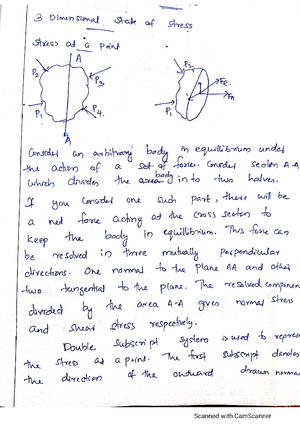 3 Dimensional State of Stress
Stress at a point
A
P2
P3
P1
P4
A
P2
FR
Fn
P1
Consider an arbitrary body in equilibrium under
the action of a set of force. Consider section A-A
which divides the area body into two halves.
If you consider one such part, there will be
a net force acting at the cross section to
keep the body in equilibrium. This force can
be resolved in three mutually perpendicular
directions. One normal to the plane AA and other
two tangential to the plane. The resolved component
divided by the area A-A gives normal stress
and shear stress respectively.
Double subscript system is used to repres
the stress at a point. The first subscript denotes
the direction of the outward drawn normal
Scanned with CamScanner